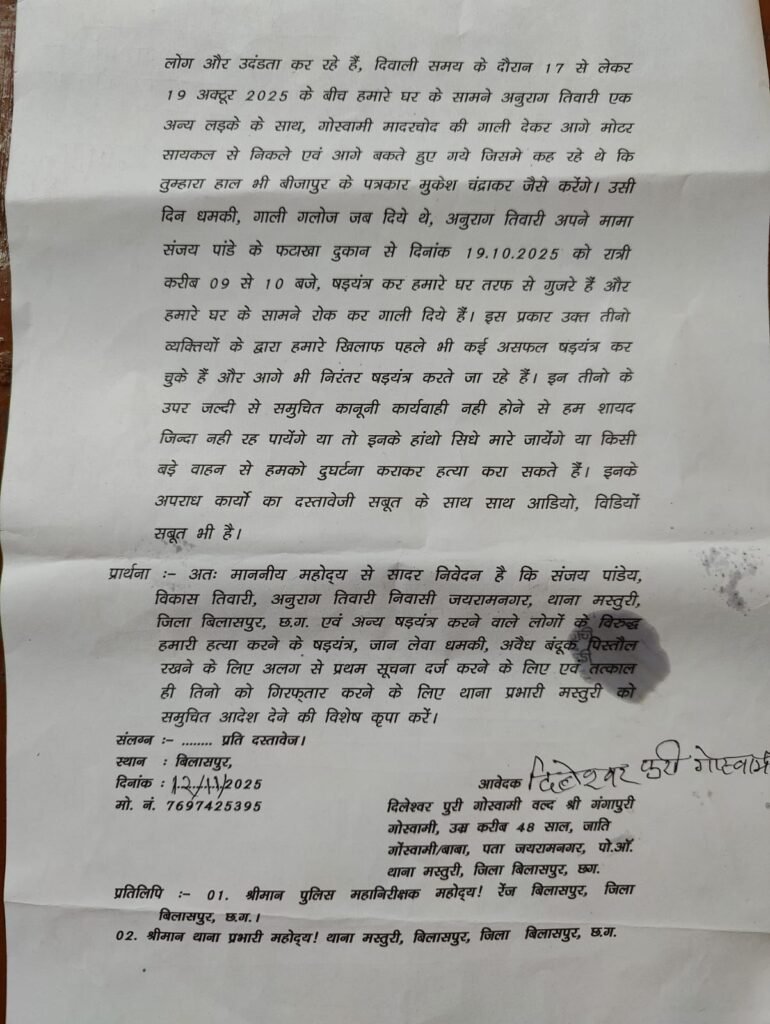 लोग और उदंडता कर रहे हैं, दिवाली समय के दौरान 17 से लेकर
19 अक्टूर 2025 के बीच हमारे घर के सामने अनुराग तिवारी एक
अन्य लड़के के साथ, गोस्वामी मादरचोद की गाली देकर आगे मोटर
सायकल से निकले एवं आगे बकते हुए गये जिसमे कह रहे थे कि
तुम्हारा हाल भी बीजापुर के पत्रकार मुकेश चंद्राकर जैसे करेंगे। उसी
दिन धमकी, गाली गलोज जब दिये थे, अनुराग तिवारी अपने मामा
संजय पांडे के फटाखा दुकान से दिनांक 19.10.2025 को रात्री
करीब 09 से 10 बजे, षड़यंत्र कर हमारे घर तरफ से गुजरे हैं और
हमारे घर के सामने रोक कर गाली दिये हैं। इस प्रकार उक्त तीनो
व्यक्तियों के द्वारा हमारे खिलाफ पहले भी कई असफल षड़यंत्र कर
चुके हैं और आगे भी निरंतर षड़यंत्र करते जा रहे हैं। इन तीनो के
उपर जल्दी से समुचित कानूनी कार्यवाही नही होने से हम शायद
जिन्दा नही रह पायेंगे या तो इनके हांथो सिधे मारे जायेंगे या किसी
बड़े वाहन से हमको दुघर्टना कराकर हत्या करा सकते हैं। इनके
अपराध कार्यो का दस्तावेजी सबूत के साथ साथ आडियो, विडियों
सबूत भी है।
प्रार्थना :- अतः माननीय महोद्य से सादर निवेदन है कि संजय पांडेय,
विकास तिवारी, अनुराग तिवारी निवासी जयरामनगर, थाना मस्तुरी,
जिला बिलासपुर, छ.ग. एवं अन्य षड़यंत्र करने वाले लोगों के विरुद्ध
हमारी हत्या करने के षड़यंत्र, जान लेवा धमकी, अवैध बंदूक पिस्तौल
रखने के लिए अलग से प्रथम सूचना दर्ज करने के लिए एवं तत्काल
ही तिनो को गिरफ्तार करने के लिए थाना प्रभारी मस्तुरी को
समुचित आदेश देने की विशेष कृपा करें।
संलग्न :- ........ प्रति दस्तावेज।
स्थान : बिलासपुर,
दिनांक : 12/11/2025
आवेदक दिलेश्वर पुरी गोस्वामी
मो. नं. 7697425395
दिलेश्वर पुरी गोस्वामी वल्द श्री गंगापुरी
गोस्वामी, उम्र करीब 48 साल, जाति
गोंस्वामी/बाबा, पता जयरामनगर, पो.ऑ.
थाना मस्तुरी, जिला बिलासपुर, छग.
प्रतिलिपि :- 01. श्रीमान पुलिस महानिरीक्षक महोद्य! रेंज बिलासपुर, जिला
बिलासपुर, छ.ग.।
02. श्रीमान थाना प्रभारी महोद्य! थाना मस्तुरी, बिलासपुर, जिला बिलासपुर, छ.ग.